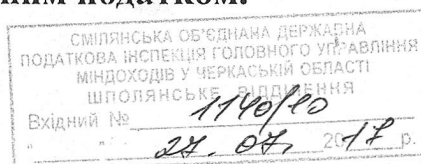 ним податком.
СМІЛЯНСЬКА ОБ'ЄДНАНА ДЕРЖАВНА
ПОДАТКОВА ІНСПЕКЦІЯ ГОЛОВНОГО УПРАВЛІННЯ
МІНДОХОДІВ У ЧЕРКАСЬКІЙ ОБЛАСТІ
ШПОЛЯНСЬКЕ ВІДДІЛЕННЯ
Вхідний № 1140/10
" 27. 07. 2017 р.